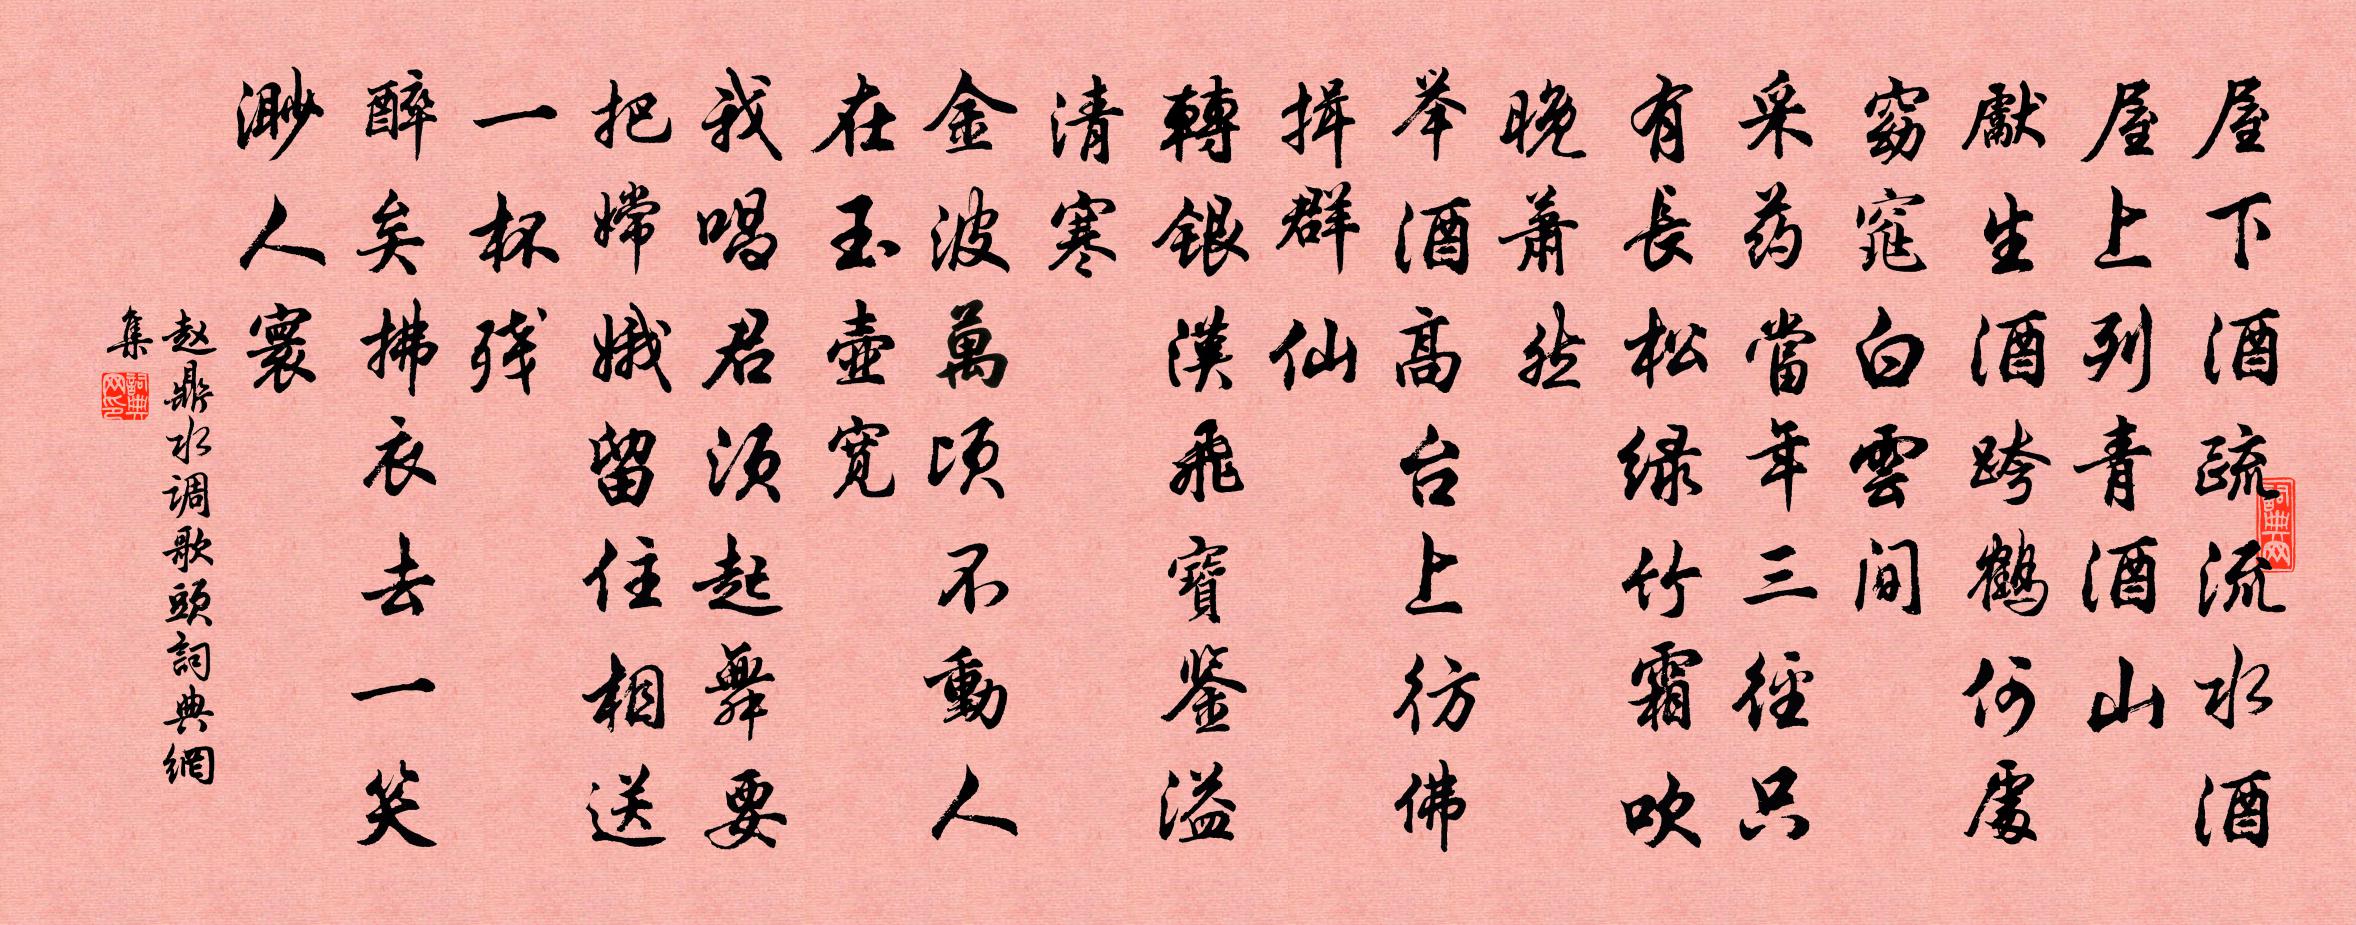 屋下酒疏流水酒
屋上列青酒山
獻生酒跨鶴何處
窈窕白雲间
采药當年三徑只
有長松绿竹霜吹
晚萧然
举酒高台上彷佛
揖群仙
轉银漢飛寶鉴溢
清寒
金波萬顷不動人
在玉壶宽
我唱君须起舞要
把嫦娥留住相送
一杯残
醉矣拂衣去一笑
渺人寰
赵鼎水调歌頭詞典網
集
詞典网
詞典网印